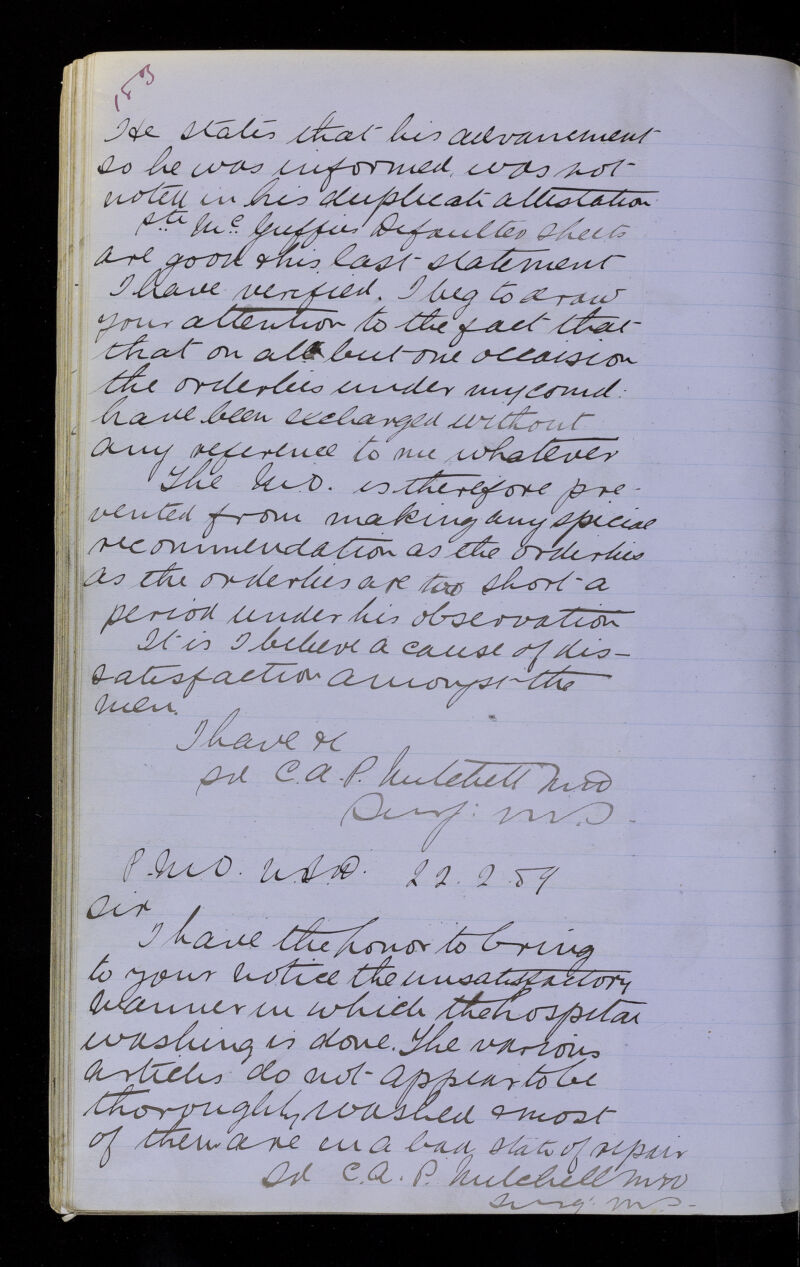 183
He states that his advancement
so he was informed, was not
noted in his duplicate attestation
Pte Mc Guffies Defaulter sheets
are good & this last statement
I have verified. I beg to draw
your attention to the fact that
that on all but one occaision
the orderlies under my comd:
have been exchanged without
any reference to me whatever
The M.O. is therefore pre-
vented from making any special
recommendation as the orderlies
as the orderlies are too short a
period under his observation
It is I believe a cause of dis-
satisfaction amongst the
men.
I have &c
Sd C.A.P. Mitchell MD
Surg: M.S.
P.M.O. 22.2.89
Sir
I have the honor to bring
to your notice the unsatisfactory
manner in which the hospital
washing is done. The various
articles do not appear to be
thoroughly washed & most
of them are in a bad state of repair
Sd C.A.P. Mitchell MD
Surg: M.S.